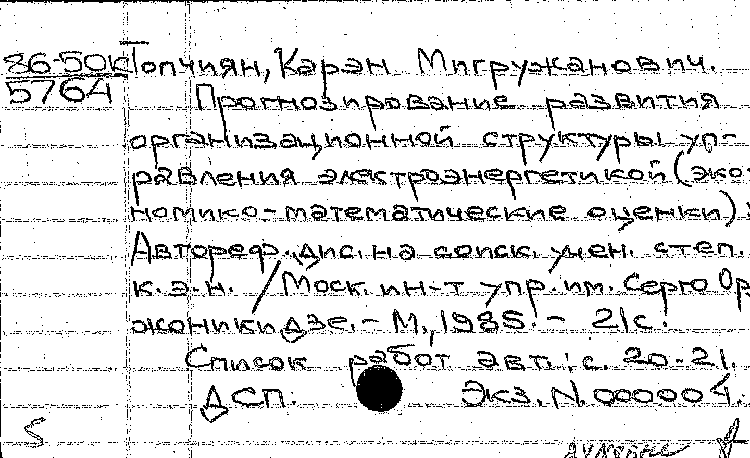 86-50К Топчиян, Карэн Мигружанович.
5764
Прогнозирование развития
организационной структуры уп-
равления электроэнергетикой (эко-
номико-математические оценки):
Автореф. дис. на соиск. учен. степ.
к.э.н. / Моск. ин-т упр. им. Серго Ор
жоникидзе. - М., 1985. - 21с.
Список работ авт.: с. 20-21.
ДСП. Экз. N. 000004.
S